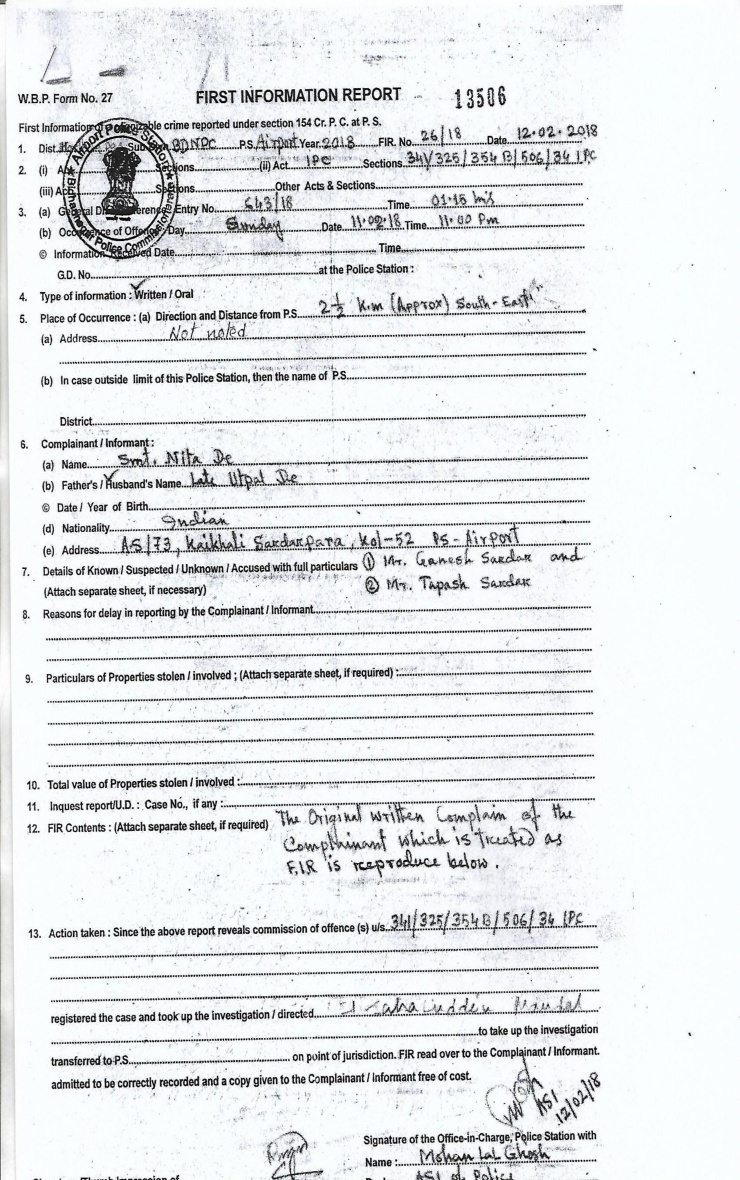 W.B.P. Form No. 27
FIRST INFORMATION REPORT
13506
First Information of cognizable crime reported under section 154 Cr. P. C. at P. S.
1. Dist. Sub BDNPC P.S. Airport Year 2018 FIR. No. 26/18 Date 12.02.2018
2. (i) Act Sections (ii) Act IPC Sections 341/325/354 B/506/34 IPC
(iii) Act Sections Other Acts & Sections
3. (a) General Diary Reference Entry No 543/18 Time 01.15 hrs
(b) Occurrence of Offence Day Sunday Date 11.02.18 Time 11.00 Pm
© Information Received Date Time
G.D. No. at the Police Station :
4. Type of information : Written / Oral
5. Place of Occurrence : (a) Direction and Distance from P.S. 2 1/2 K.m (Approx) South-East
(a) Address Not noted
(b) In case outside limit of this Police Station, then the name of P.S.
District
6. Complainant / Informant :
(a) Name Smt. Nita De
(b) Father's / Husband's Name Late Utpal De
© Date / Year of Birth
(d) Nationality Indian
(e) Address AS/73, Kaikhali Sardarpara, Kol-52 PS-Airport
7. Details of Known / Suspected / Unknown / Accused with full particulars ① Mr. Ganesh Sardar and
(Attach separate sheet, if necessary) ② Mr. Tapash Sardar
8. Reasons for delay in reporting by the Complainant / Informant
9. Particulars of Properties stolen / involved ; (Attach separate sheet, if required) :
10. Total value of Properties stolen / involved :
11. Inquest report/U.D. : Case No., if any :
12. FIR Contents : (Attach separate sheet, if required) The Original written Complain of the
Complainant which is treated as
F.I.R is reproduce below.
13. Action taken : Since the above report reveals commission of offence (s) u/s. 341/325/354 B/506/34 IPC
registered the case and took up the investigation / directed
to take up the investigation
transferred to P.S. on point of jurisdiction. FIR read over to the Complainant / Informant.
admitted to be correctly recorded and a copy given to the Complainant / Informant free of cost.
ASI
12/02/18
Signature of the Office-in-Charge, Police Station with
Name : Mohan Lal Ghosh
ASI of Police